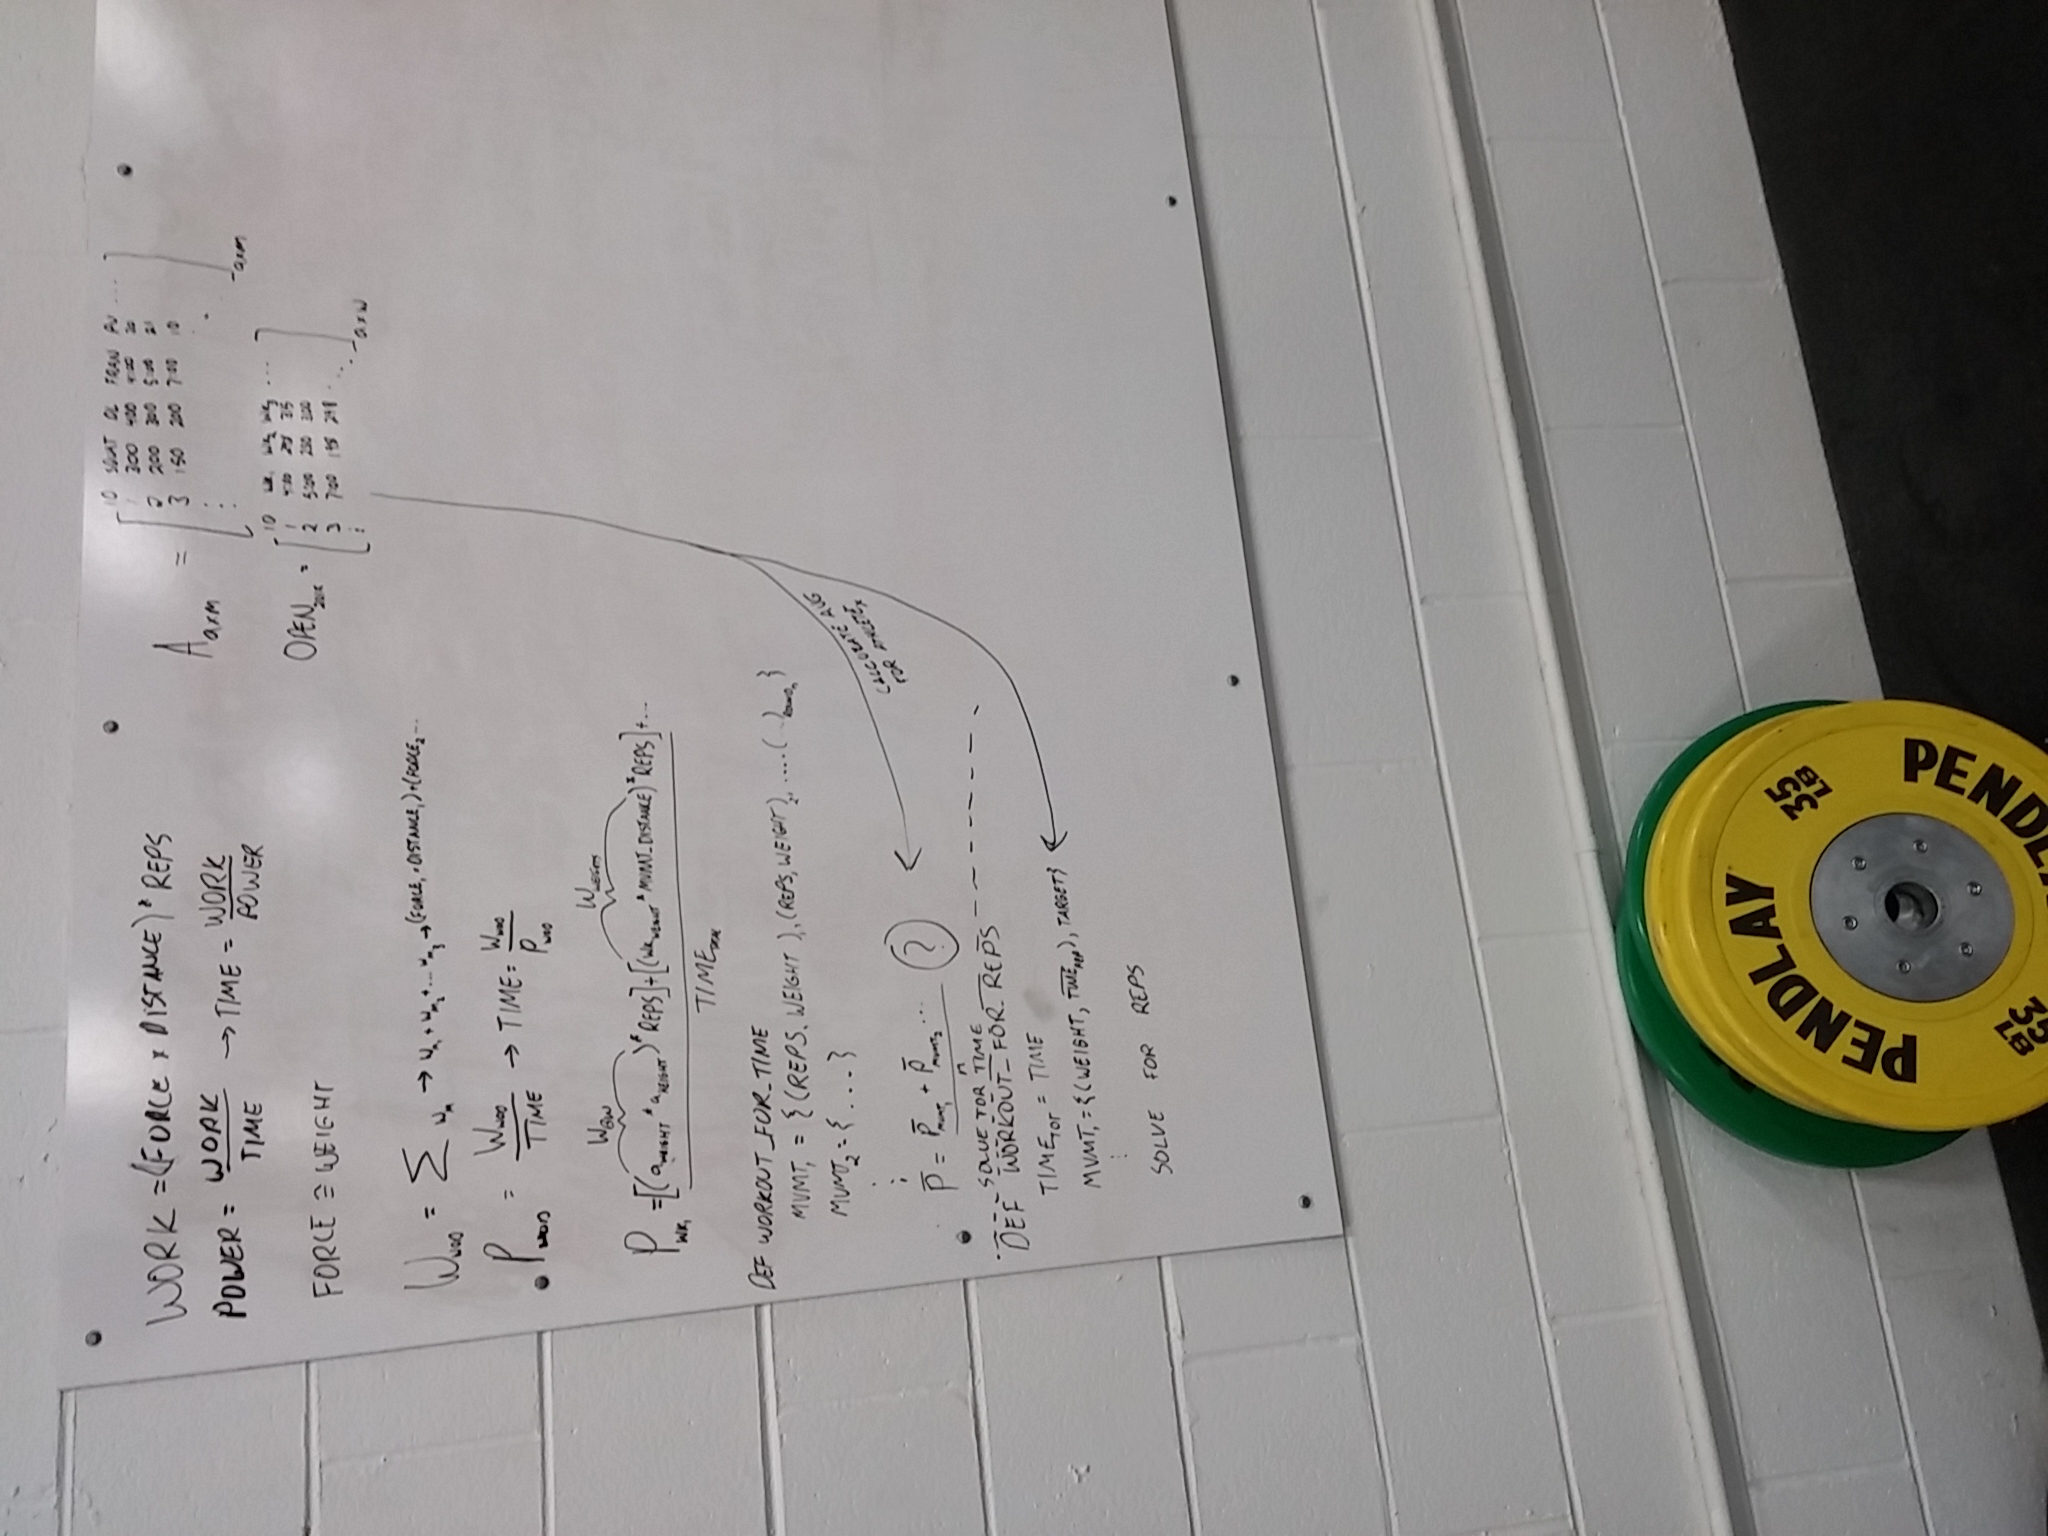 WORK = (FORCE x DISTANCE) * REPS
POWER = WORK / TIME → TIME = WORK / POWER
FORCE ≅ WEIGHT
W_WOD = Σ W_M → W_M1 + W_M2 + ... W_M3 → (FORCE_1 * DISTANCE_1) + (FORCE_2 ...
P_WOD = W_WOD / TIME → TIME = W_WOD / P_WOD
W_BW W_WEIGHTS
P_WK1 = [(a_WEIGHT * a_HEIGHT) * REPS] + [(WK_WEIGHT * MVMT_DISTANCE) * REPS] + ...
TIME_TOTAL
DEF WORKOUT_FOR_TIME
MVMT_1 = {(REPS, WEIGHT)_1, (REPS, WEIGHT)_2, .... (...)_ROUND_n}
MVMT_2 = {...}
P̄ = P̄_MVMT1 + P̄_MVMT2 ... / n (?)
SOLVE FOR TIME
DEF WORKOUT_FOR_REPS
TIME_TOT = TIME
MVMT_1 = {(WEIGHT, TIME_REP), TARGET}
SOLVE FOR REPS
A_axm =
ID SQUAT DL FRAN PU ...
1 300 400 4:00 30
2 200 300 5:00 21
3 150 200 7:00 10
axm
OPEN =
ID WK_1 WK_2 WK_3 ...
1 4:00
2 5:00 250 300
3 7:00 198 298
axw
CALCULATE AVG
FOR ATHLETE_x
PENDLAY
35
LB
PENDLAY
35
LB